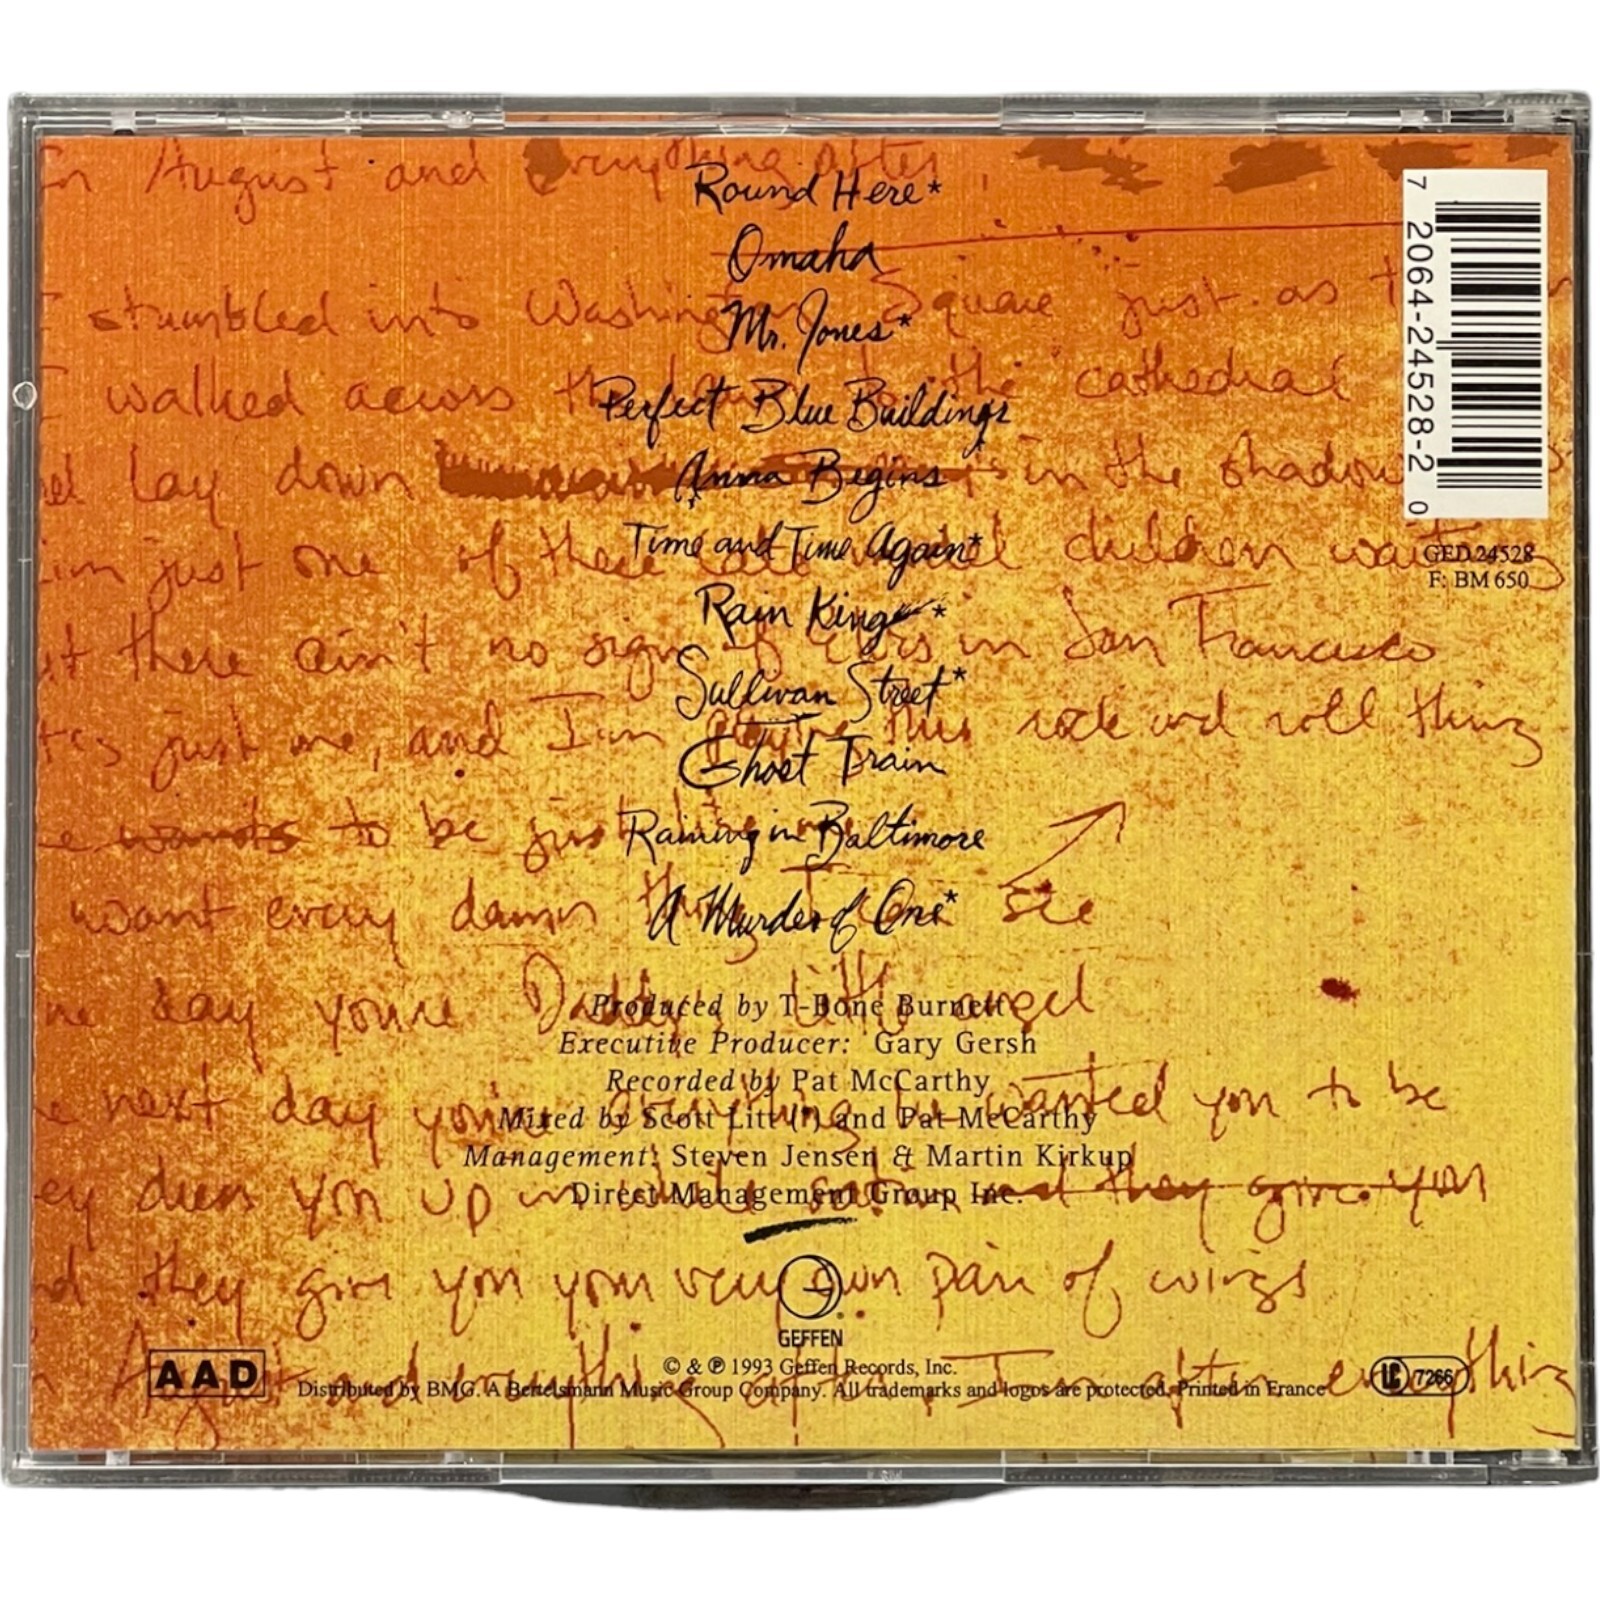 In August and Everything after,
Round Here*
Omaha
stumbled into Washington Square just as
Mr. Jones*
walked across the cathedral
Perfect Blue Buildings
lay down in the shadow
Anna Begins
just one of these children
Time and Time Again*
Rain King*
there ain't no sign of in San Francisco
Sullivan Street*
just me, and I'm this rock and roll thing
Ghost Train
wants to be just
Raining in Baltimore
want every damn thing I see
A Murder of One*
day you're Daddy's little angel
Produced by T-Bone Burnett
Executive Producer: Gary Gersh
Recorded by Pat McCarthy
next day you're everything he wanted you to be
Mixed by Scott Litt (*) and Pat McCarthy
Management: Steven Jensen & Martin Kirkup
dress you up in white satin and they give you
Direct Management Group Inc.
they give you your very own pair of wings
GEFFEN
August and everything after I'm after everything
© & ℗ 1993 Geffen Records, Inc.
AAD
Distributed by BMG. A Bertelsmann Music Group Company. All trademarks and logos are protected. Printed in France
LC 7266
7 2064-24528-2 0
GED 24528
F: BM 650